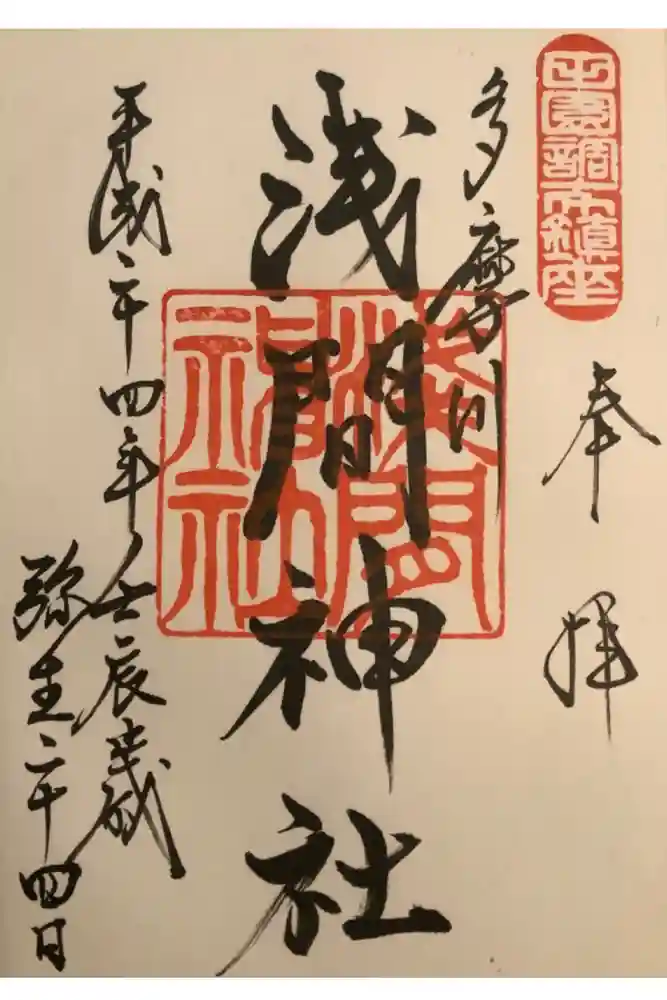 田園調布鎮座
奉拝
多摩川
浅間神社
平成二十四年壬辰歳
弥生二十四日